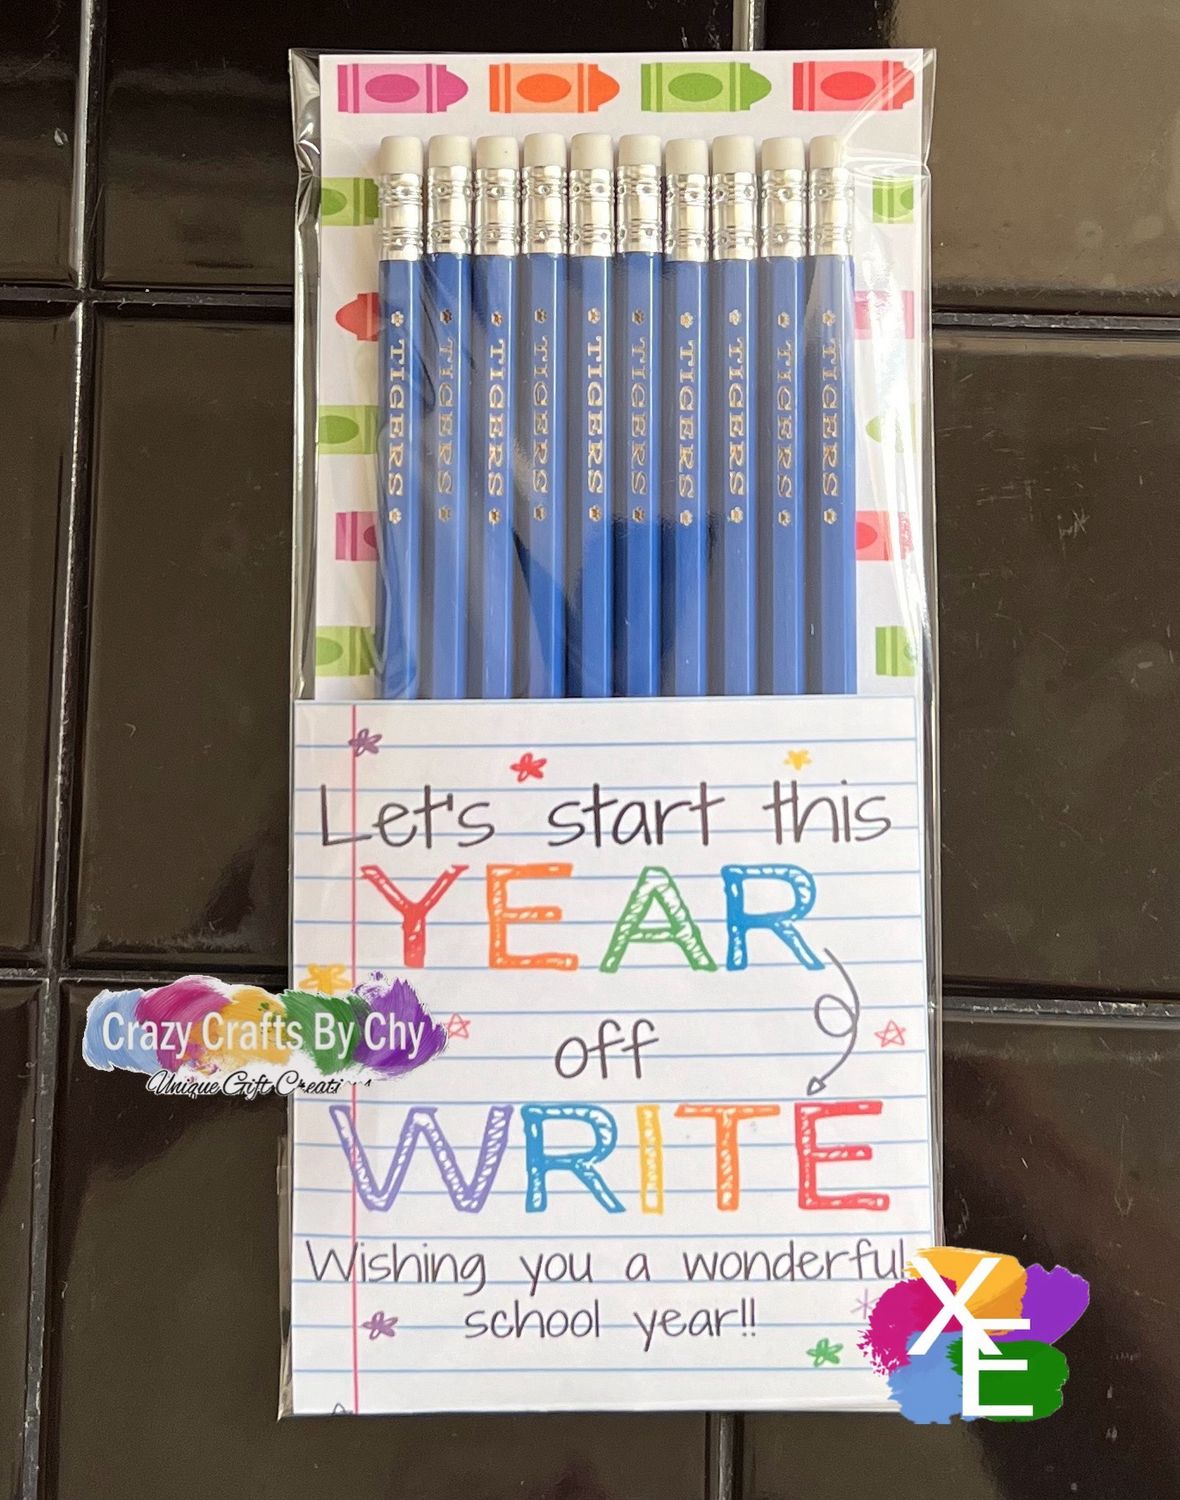 TIGERS
TIGERS
TIGERS
TIGERS
TIGERS
TIGERS
TIGERS
TIGERS
TIGERS
TIGERS
Let's start this
YEAR
off
WRITE
Wishing you a wonderful
school year!!
Crazy Crafts By Chy
Unique Gift Creations
XE